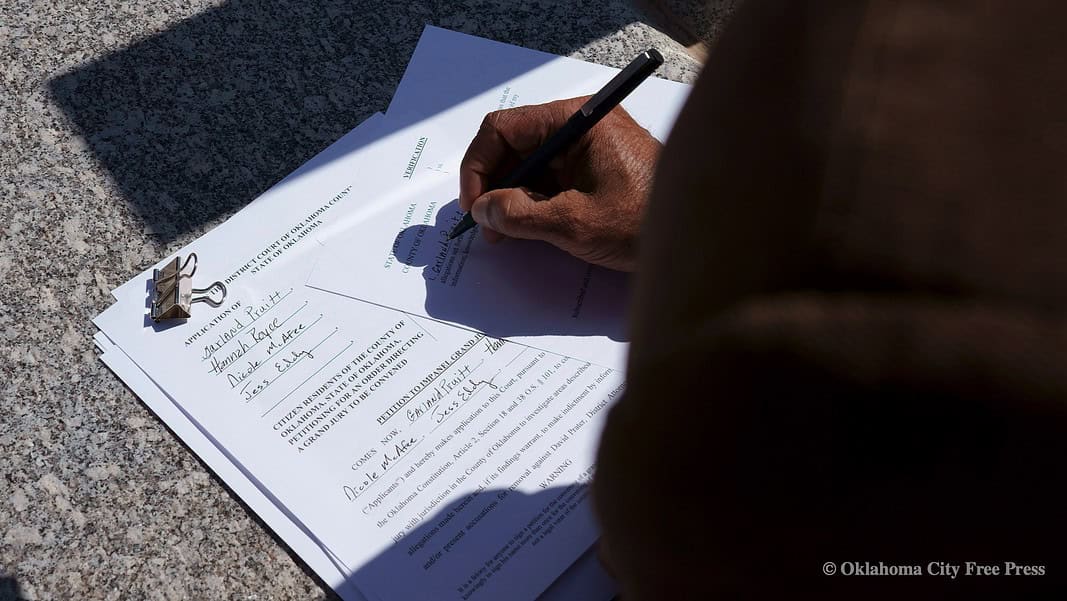 DISTRICT COURT OF OKLAHOMA COUNT
STATE OF OKLAHOMA
APPLICATION OF
Garland Pruitt
Hannah Royce
Nicole McAfee
Jess Eddy
CITIZEN RESIDENTS OF THE COUNTY OF
OKLAHOMA, STATE OF OKLAHOMA,
PETITIONING FOR AN ORDER DIRECTING
A GRAND JURY TO BE CONVENED
PETITION TO IMPANEL GRAND
COMES NOW, Garland Pruitt
Nicole McAfee, Jess Eddy
("Applicants") and hereby makes application to this Court, pursuant to
the Oklahoma Constitution, Article 2, Section 18 and 38 O.S. § 101, to
jury with jurisdiction in the County of Oklahoma to investigate areas described
allegations made herein and, if its findings warrant, to make indictment by inform
and/or present accusations for removal against David Prater, District Attorne
WARNING
It is a felony for anyone to sign a petition for the
knowingly to sign his name more than once for the
not a legal voter of the
VERIFICATION
STATE OF OKLAHOMA
COUNTY OF OKLAHOMA
I, Garland Pruitt
allegations
information,
© Oklahoma City Free Press